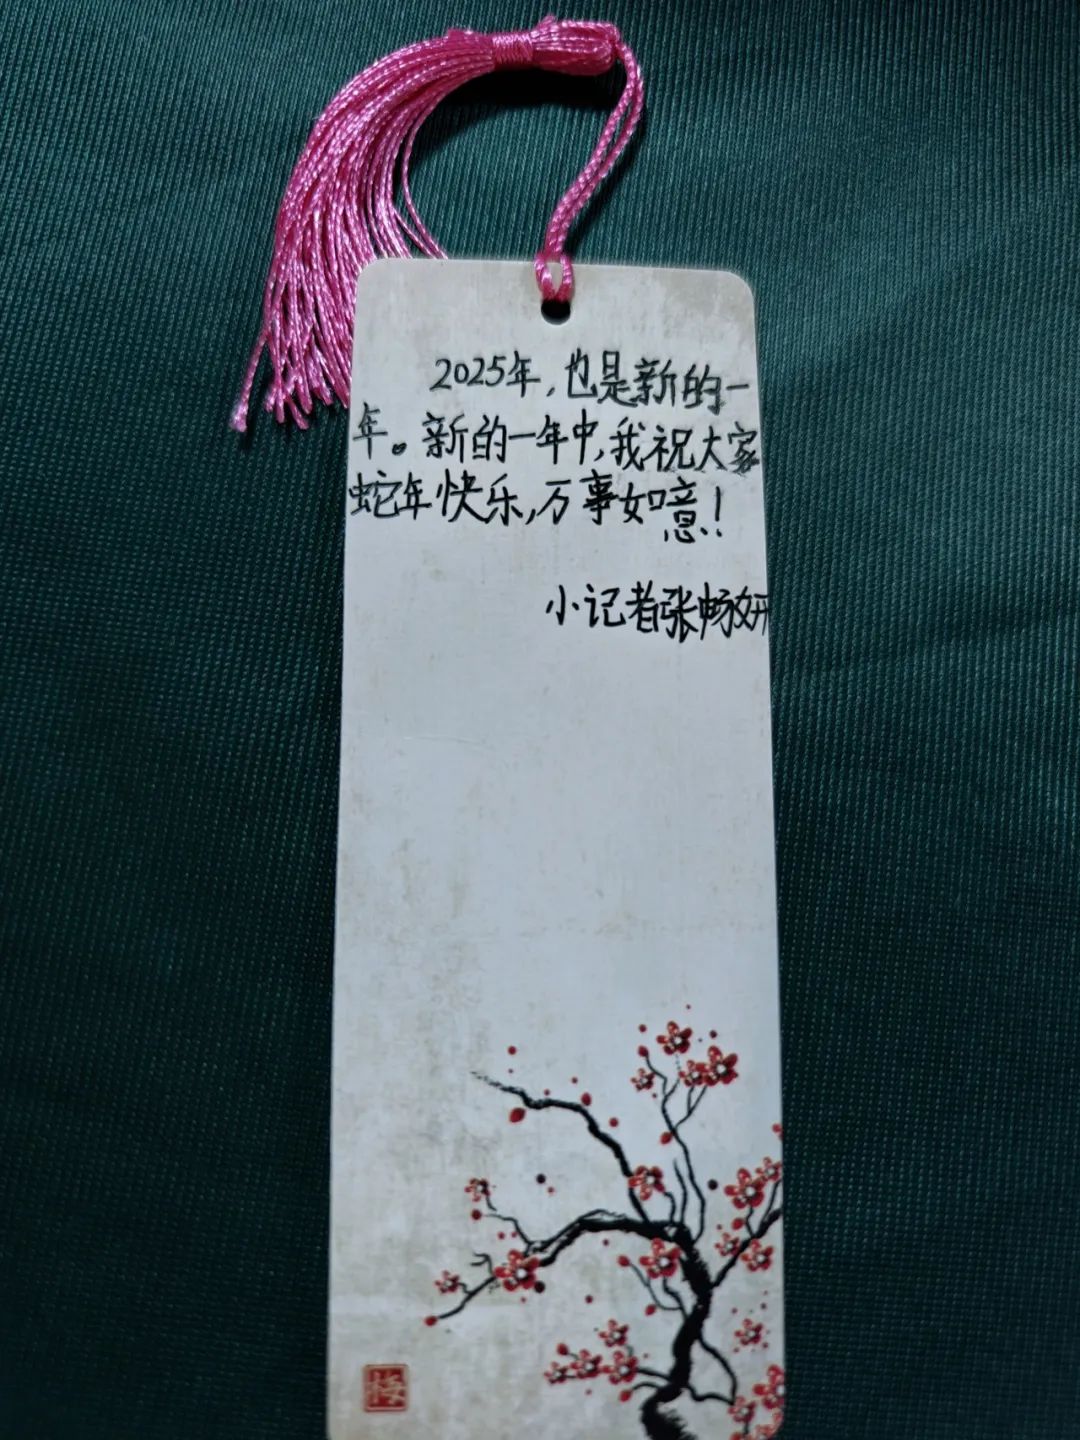 2025年，也是新的一
年。新的一年中，我祝大家
蛇年快乐，万事如意！
小记者张畅妍
梅